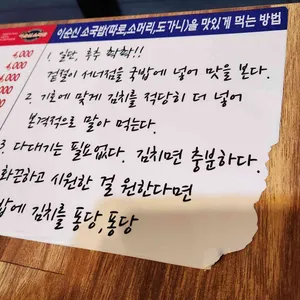 이순신 소국밥(따로,소머리,도가니)을 맛있게 먹는 방법
4,000
4,000
1. 일단, 후추 촥촥!!
겉절이 서너점을 국밥에 넣어 맛을 본다.
2. 기호에 맞게 김치를 적당히 더 넣어
본격적으로 말아 먹는다.
3. 다대기는 필요없다. 김치면 충분하다.
화끈하고 시원한 걸 원한다면
밥에 김치를 퐁당, 퐁당